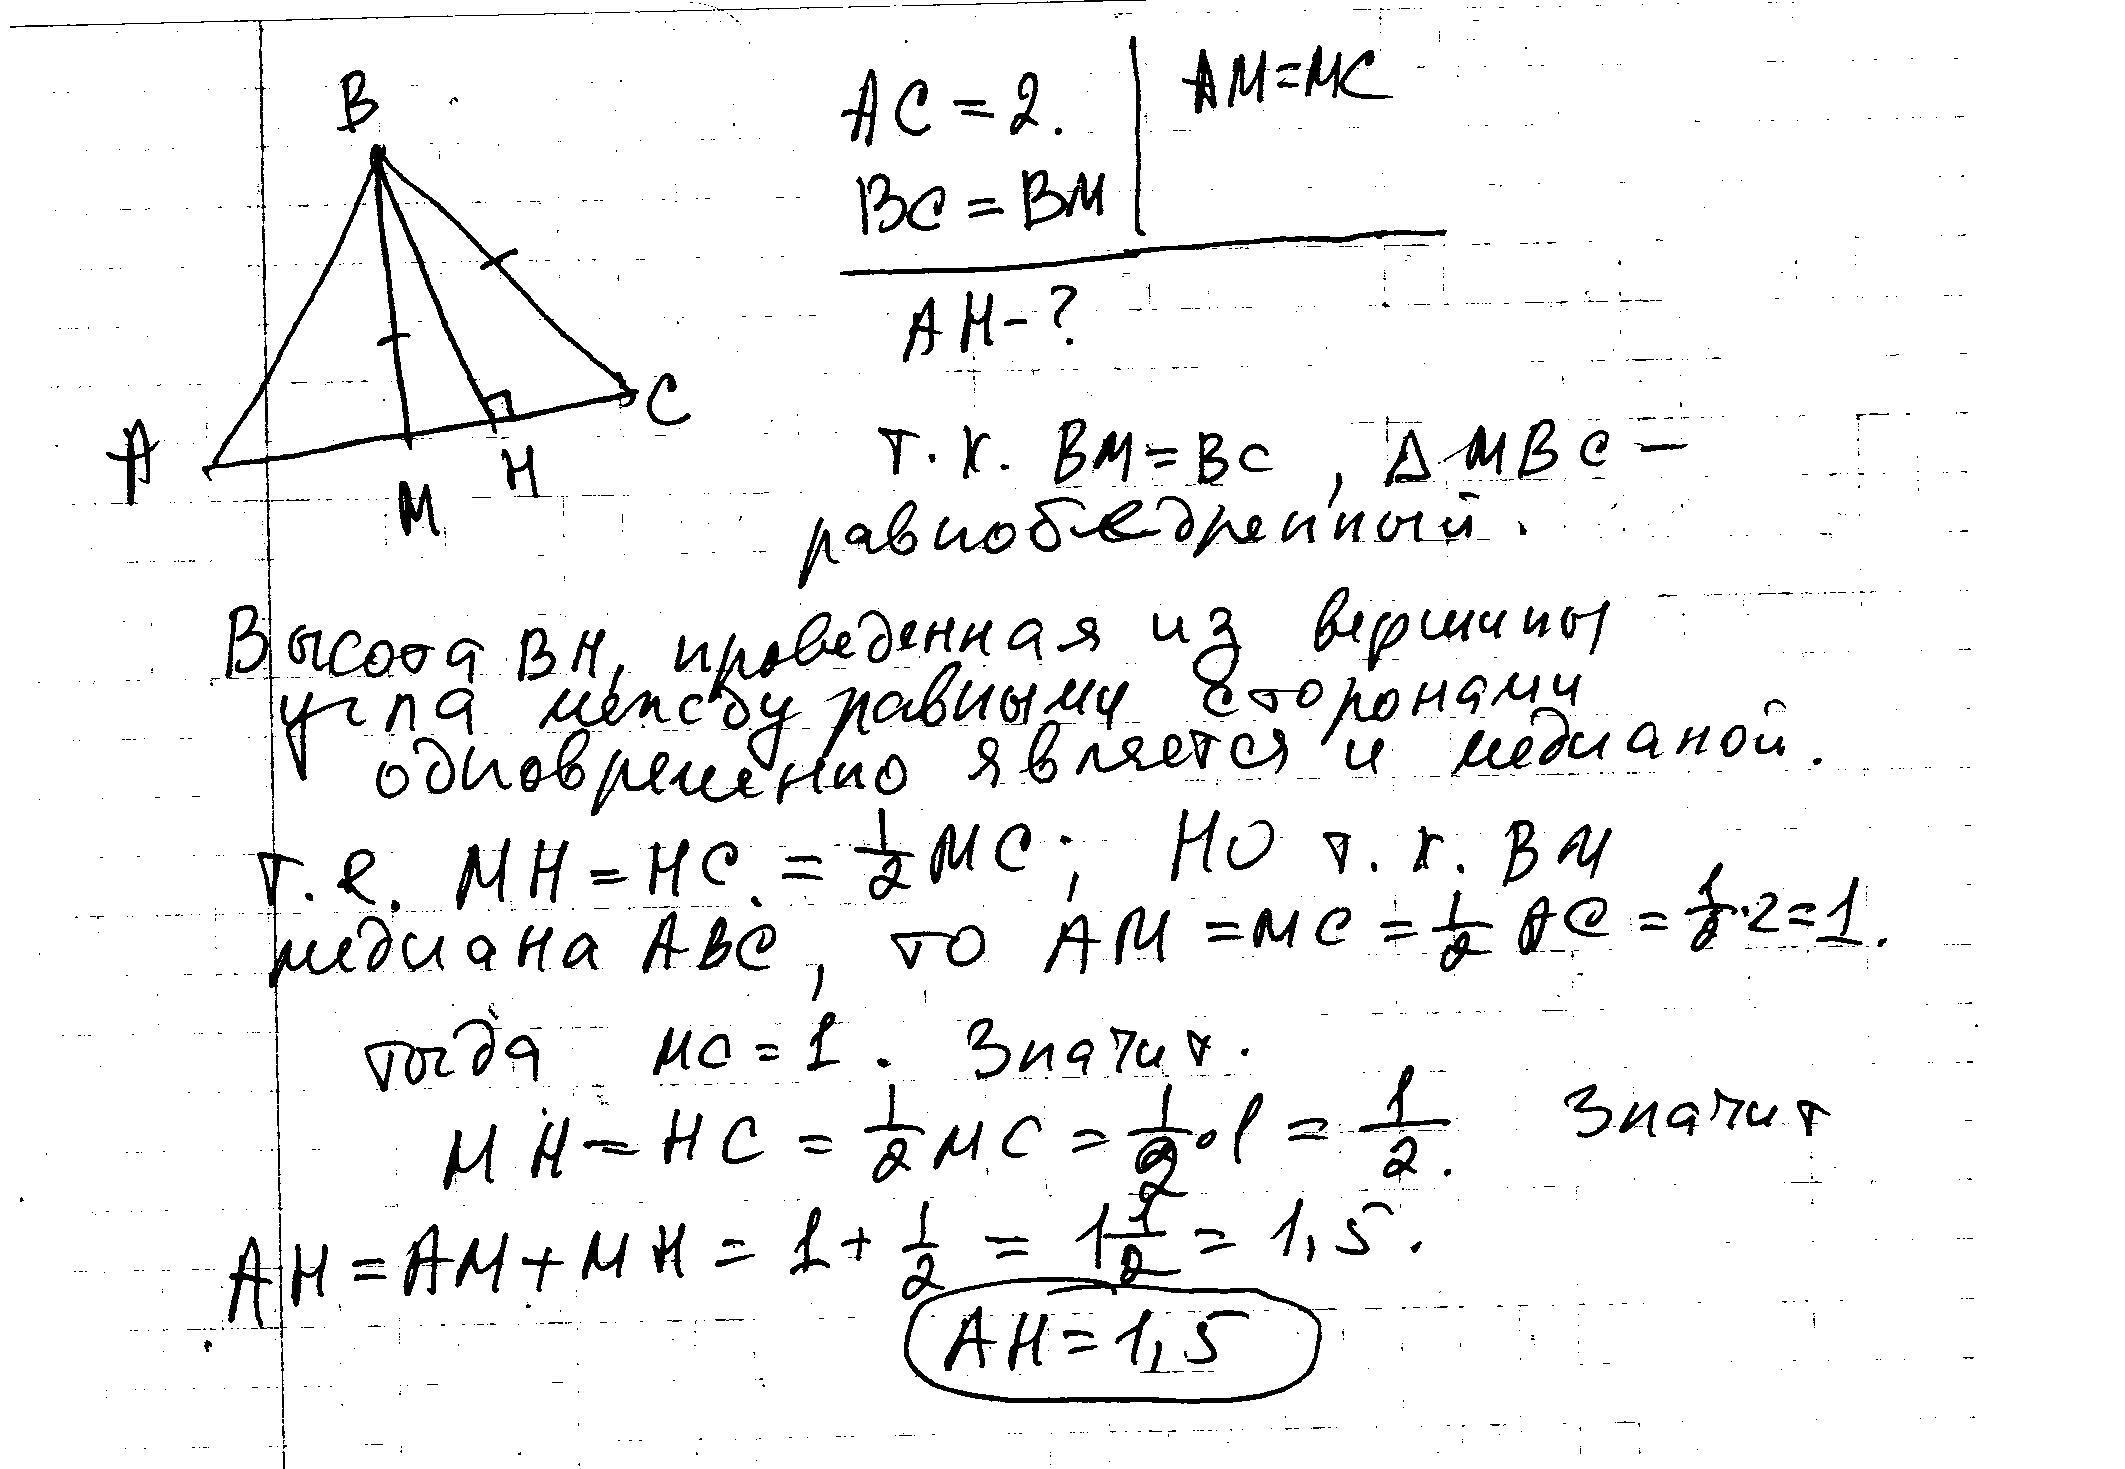 B
A
M
H
C
AC = 2.
AM=MC
BC = BM
AH-?
т.к. BM=BC, Δ MBC –
равнобедренный.
Высота BH, проведенная из вершины
угла между равными сторонами
одновременно является и медианой.
т.е. MH=HC = 1/2 MC; НО т.к. BM
медиана ABC, то AM = MC = 1/2 AC = 1/2·2=1.
тогда MC=1. Значит.
MH=HC = 1/2 MC = 1/2·1 = 1/2. Значит
AH=AM+MH = 1+ 1/2 = 1 1/2 = 1,5.
AH=1,5